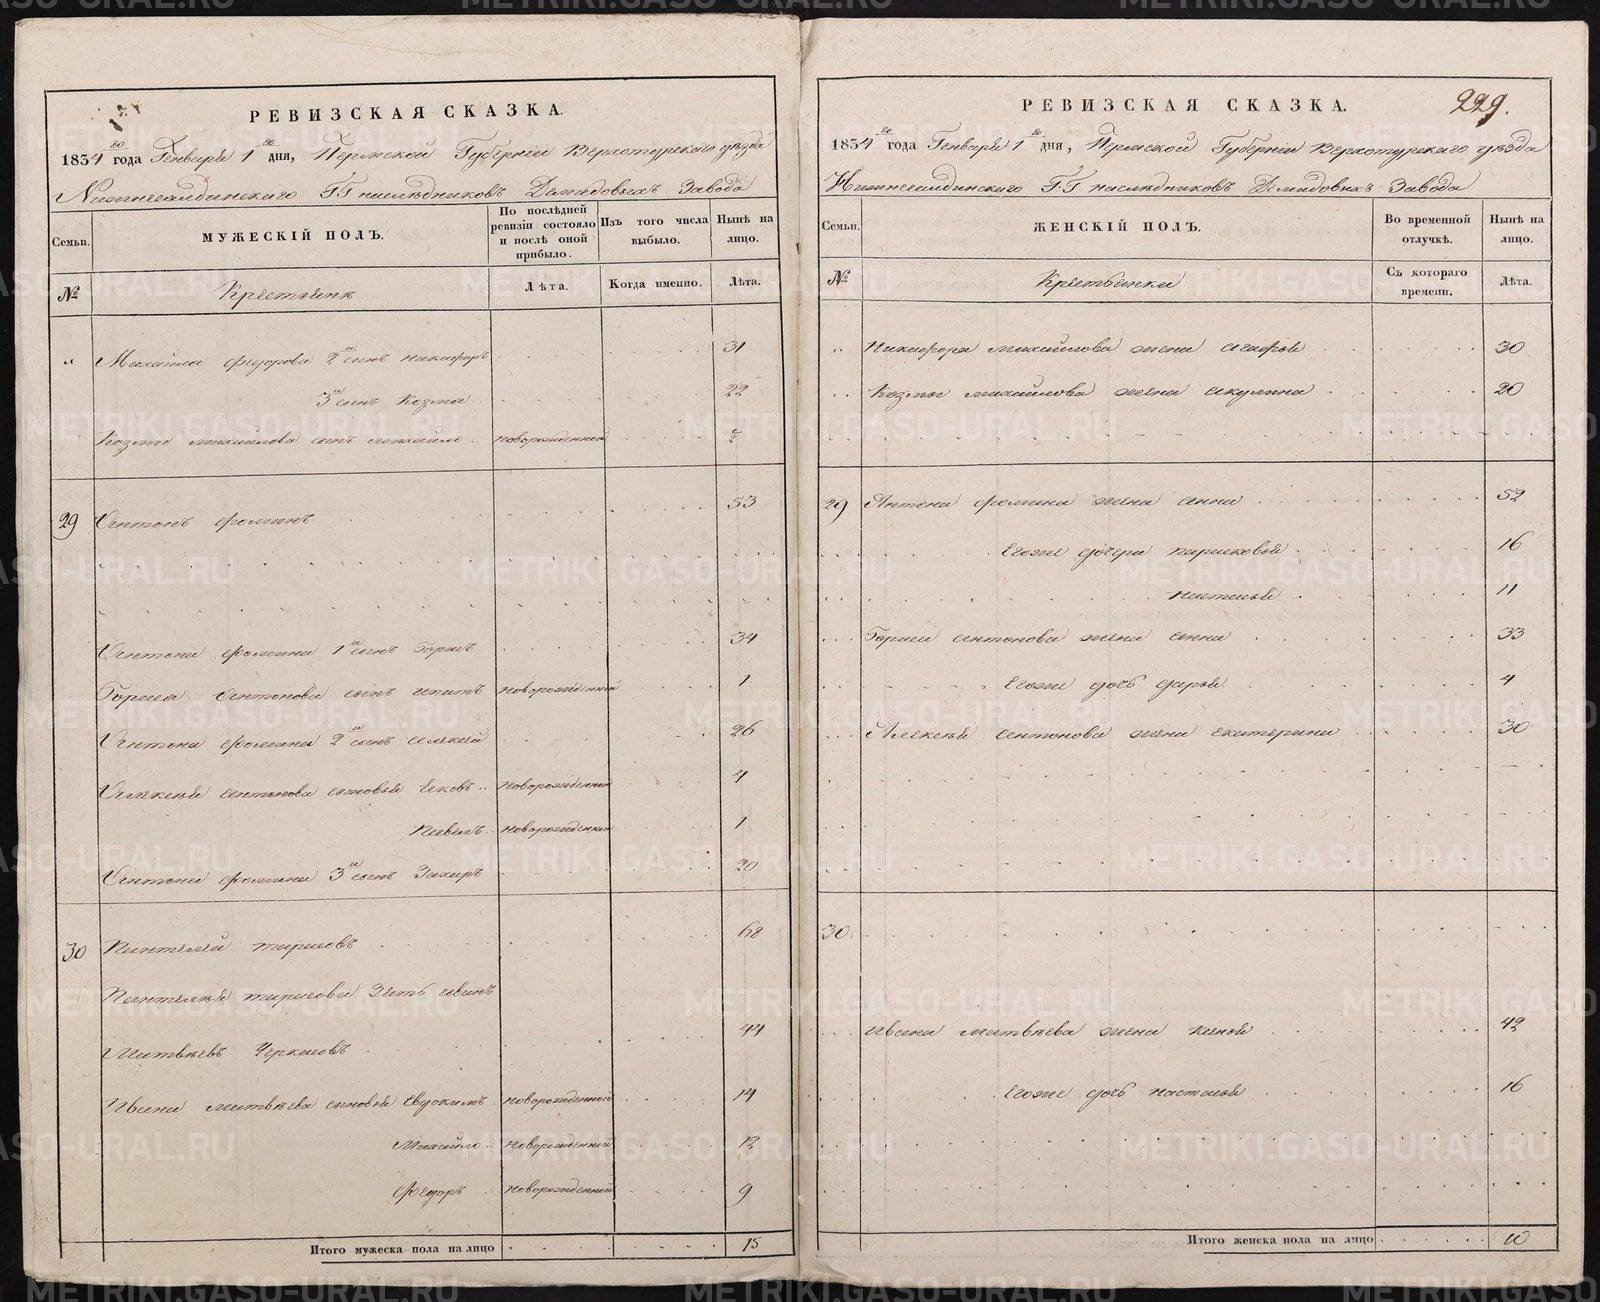 РЕВИЗСКАЯ СКАЗКА.
1834 го года Генваря 1 го дня, Пермской Губернiи Верхотурскаго уѣзда
Нижнесалдинскаго Г.Г наслѣдниковъ Демидовыхъ Завода
Семьи. МУЖЕСКIЙ ПОЛЪ. По послѣдней ревизiи состояло и послѣ оной прибыло. Изъ того числа выбыло. Нынѣ на лицо.
№ Крестьяне Лѣта. Когда именно. Лѣта.
" Михайла Федорова 2й сынъ Никифоръ 31
3й сынъ Козма 22
Козмы Михайлова сынъ Михайло новорожденной
29 Антонъ Фоминъ 53
Антона Фомина 1й сынъ Борисъ 34
Бориса Антонова сынъ Ипатъ новорожденной 1
Антона Фомина 2й сынъ Алексей 26
Алексея Антонова сыновья Яковъ новорожденной 4
Павелъ новорожденной 1
Антона Фомина 3й сынъ Захаръ 20
30 Пантелей Тарасовъ 68
Пантелея Тарасова Зять Иванъ
Матвѣевъ Черкасовъ 44
Ивана Матвѣева сыновья Евдокимъ новорожденной 14
Михайло новорожденной 12
Федоръ новорожденной 9
Итого мужеска пола на лицо 15
229.
РЕВИЗСКАЯ СКАЗКА.
1834 го года Генваря 1 го дня, Пермской Губернiи Верхотурскаго уѣзда
Нижнесалдинскаго Г.Г наслѣдниковъ Демидовыхъ Завода
Семьи. ЖЕНСКIЙ ПОЛЪ. Во временной отлучкѣ. Нынѣ на лицо.
№ Крестьянки Съ котораго времени. Лѣта.
Никифора Михайлова жена Агафья 30
Козмы Михайлова жена Акулина 20
29 Антона Фомина жена Анна 52
Егоже дочери Парасковья 16
Настасья 11
Бориса Антонова жена Анна 33
Егоже дочь Дарья 4
Алексея Антонова жена Екатерина 30
30
Ивана Матвѣева жена 42
Егоже дочь Настасья 16
Итого женска пола на лицо 10
METRIKI.GASO-URAL.RU